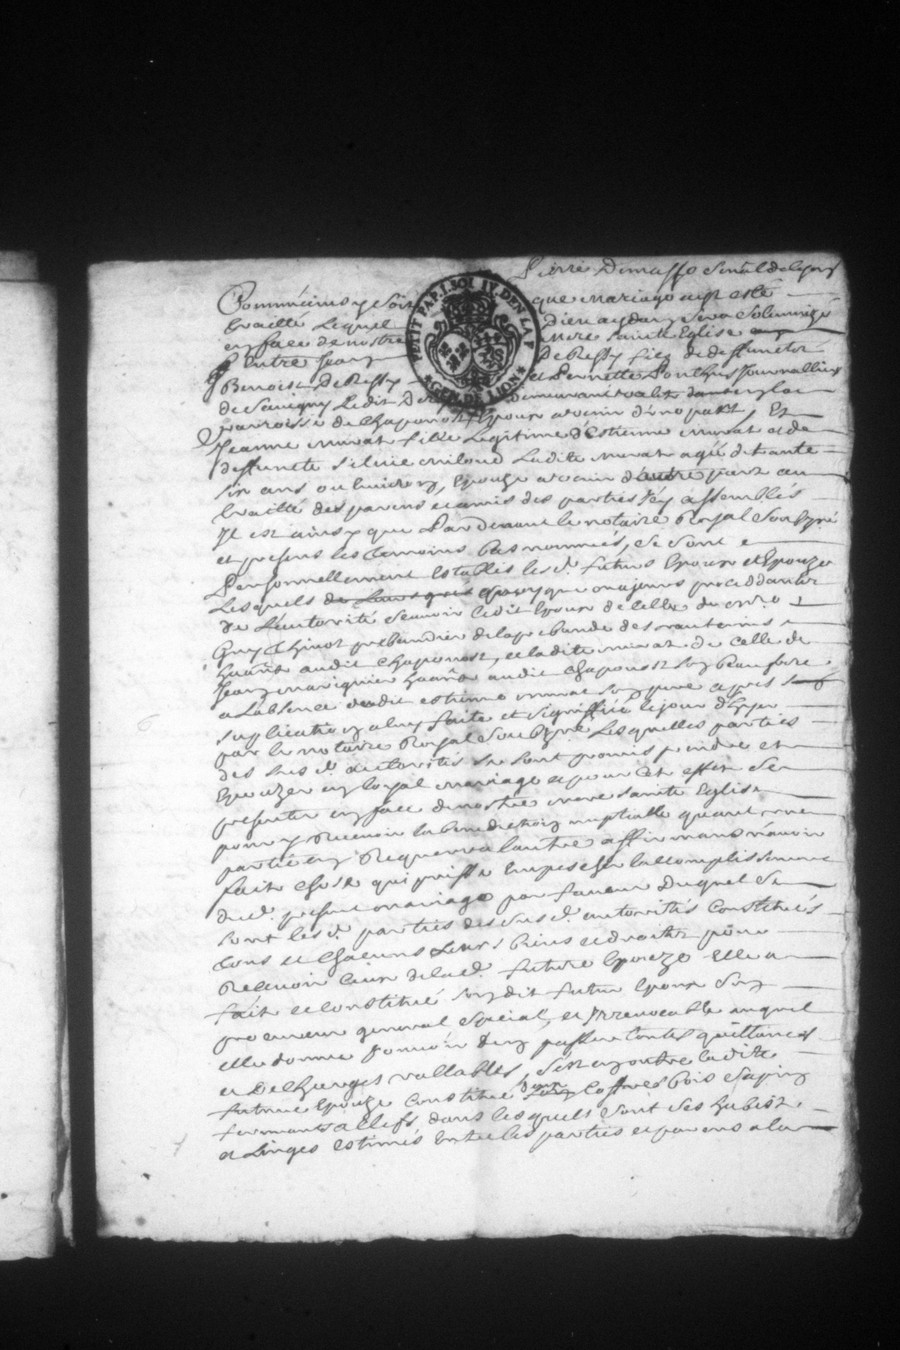 Pierre Demasso Senal de lyon
Comme ainsy soit que mariage aist esté
traitté lequel Dieu aydant sera solemnisé
en face de nostre mere sainte Eglise
Entre Jean De Ressy fils de deffunctz
Benoist De Ressy et Pernette Ponthus Journallier
de Savigny demeurant
parroisse de Chaponost Epoux avenir d'une part, Et
Jeanne murat fille Legitime d'Estienne murat et de
deffuncte Silvie Ladite murat agée de trante
six ans ou environ, Epouze avenir d'autre part au
traitté des parens et amis des parties Icy assemblés
Il est ainsy que Pardevant le notaire Royal soubzné
et presens les temoins bas nommés, se sont
Personnellement Establis lesd. futurs Epoux et Epouze
Lesquels procéddants
de L'autorité scavoir ledit Epoux de celle de
Guy Chinot prebandier de la prebande des
audit Chaponost, et ladite murat de celle de
Jean audit Chaponost son beau frere
a Labsence dudit estienne murat son pere apres
suplication a luy faite et signiffiée le jour d'hyer
par le notaire Royal soubzné Lesquelles parties
des susd. autorités se sont promis prendre et
Epouzer en loyal mariage et pour cet effet se
presenter en face de nostre mere sainte Eglise
pour y recevoir la benediction nuptialle quand une
partie en Requerra lautre affirmans n'avoir
fait chose qui puisse Empescher laccomplissement
dud. present mariage par faveur Duquel se
sont lesd. parties des susd. autorités Constitués
tous et chacuns Leurs biens et droits pour
Recevoir ceux de lad. future Epouze elle a
fait et constitué sondit futur Epoux son
procureur general special, et Irrevocable auquel
elle donne pouvoir d'en passer toutes quittances
et Decharges vallables, s'est en outre ladite
future Epouze Constitué deux Coffres bois sapin
fermants a Clefs, dans lesquels sont ses habits
et Linges estimés entre les parties et parens a la
PETIT PAP. I. SOL IV. DEN. LA F
GEN. DE LION